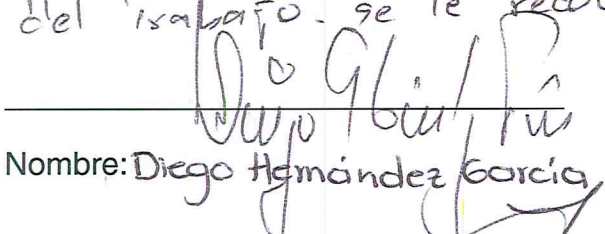 del trabajo. se le
Nombre: Diego Hernández García